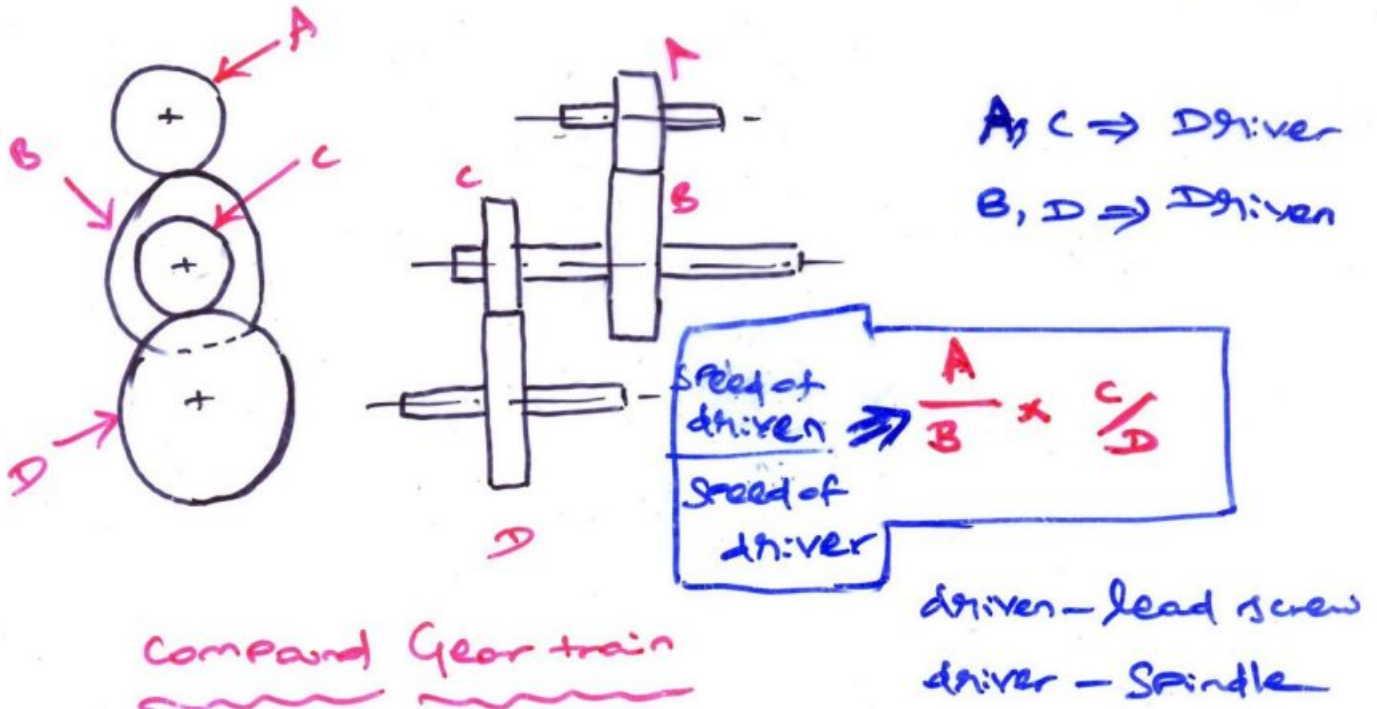 A
B
C
A
C
B
D
D
A, C ⇒ Driver
B, D ⇒ Driven
Speed of
driven
Speed of
driver
⇒ A/B × C/D
driven - lead screw
driver - Spindle
Compound Gear train